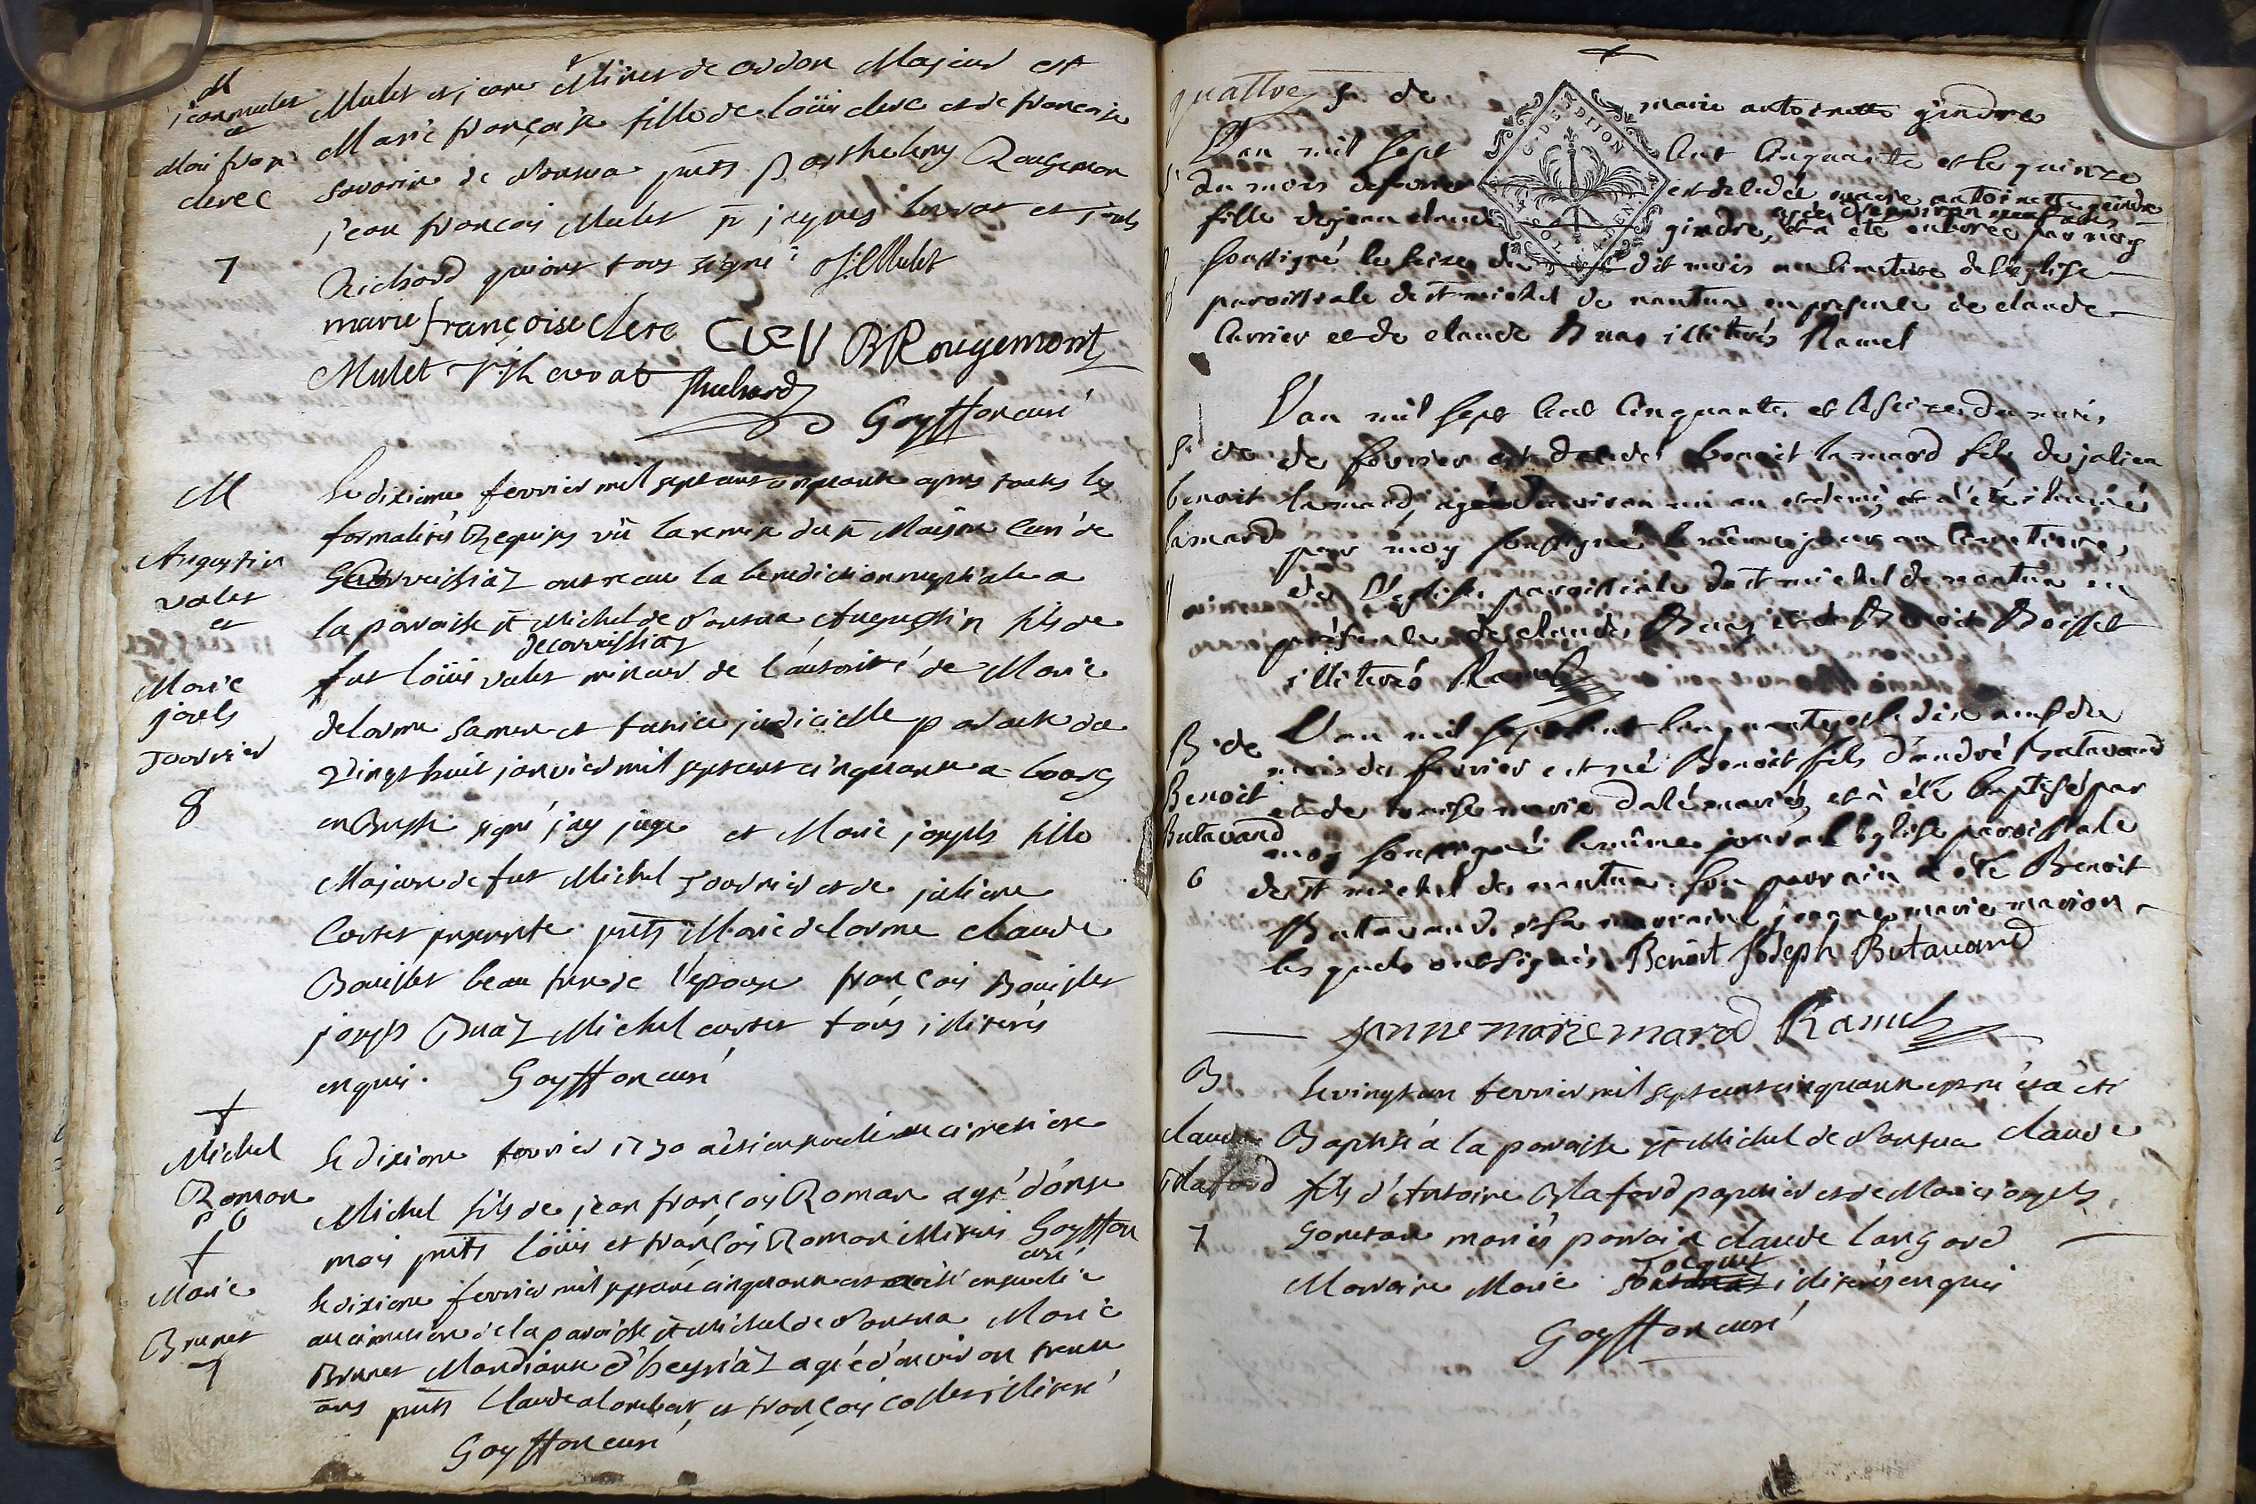 M
jean mulet
et
Mari fran
clerc
7
Mulet et jeane Minet de ordon Majeur et
Marie françoise fille de loüis clerc et de françoise
savarin de Nantua pnts Barthelemy Rougemon
jean françois Mulet jacques hervat et joseph
Richard qui ont tous signé
Mulet
marie françoise clerc Clerc BRougemont
Mulet hervat Richard
Goyffon curé
M
Augustin
valet
et
Marie
joseph
Tournier
8
Le dixieme fevrier mil sept cent cinquante apres toutes les
formalités Requises vü la remise du Sr Maison Curé de
Corveissiaz ont recu la benediction nuptiale a
la paroisse St Michel de Nantua Augustin fils de
decorveissiaz
fut loüis valet mineur de l'autorité de Marie
delorme sa mere et tutrice judicielle par acte du
vingt huit janvier mil sept cent cinquante a bourg
en Bresse signé jay juge et Marie joseph fille
Majeure de fut Michel Tournier et de juliene
Cortet presente pnts Marie delorme claude
Bouillet beau frere de l'epouse françois Bouillet
joseph Buaz Michel cortet tous illiterés
enquis. Goyffon curé
+
Michel
Roman
p 6
Le dixieme fevrier 1750 a été enseveli au cimetiere
Michel fils de jean françois Roman agé d'onse
mois pnts loüis et françois Roman illiterés Goyffon
curé
+
Marie
Brunet
7
Le dixieme fevrier mil sept cent cinquante est a été ensevelie
au cimetiere de la paroisse St Michel de Nantua Marie
Brunet Mandiante d'heyriaz agée d'environ trente
ans pnts Claude alombert et françois collet illiteré
Goyffon curé
quattre
S. de
marie antoinette gindre
L'an mil sept cent cinquante et le quinze
du mois de fevrier est decedée marie antoinette gindre
agée d'environ neuf ans
fille de jean claude gindre, et a été enterrée par moy
soussigné le seize du dit mois au cimetiere de l'eglise
paroissiale de st michel de nantua en presence de claude
Carrier et de claude Buaz illiterés Ramel
S. de
benoit
lamard
L'an mil sept cent cinquante et le seize du mois
de fevrier est decedé benoit lamard fils de julien
lamard, agé d'environ un an et demi, et a été inhumé
par moy soussigné le même jour au cimetiere
de l'eglise paroissiale de st michel de nantua en
presence de claude Buaz et de Benoit Boisset
illiterés Ramel
B. de
Benoit
Butavand
6
L'an mil sept cent cinquante et le dix neuf du
mois de fevrier est né Benoit fils d'andré Butavand
et de marie dalé mariés, et a été baptisé par
moy soussigné le même jour a l'eglise paroissiale
de st michel de nantua. son parrain a été Benoit
Butavand, et sa marraine jeanne marie marion
lesquels ont signés Benoit Joseph Butavand
janne marie marod Ramel
B
claude
Blafond
7
Le vingt un fevrier mil sept cent cinquante est né et a eté
Baptisé a la paroisse St Michel de Nantua claude
fils d'Antoine Blafond papetier et de Marie joseph
Goneton mariés parrain claude langard
Tocquet
Marraine Marie illiterés enquis
Goyffon curé